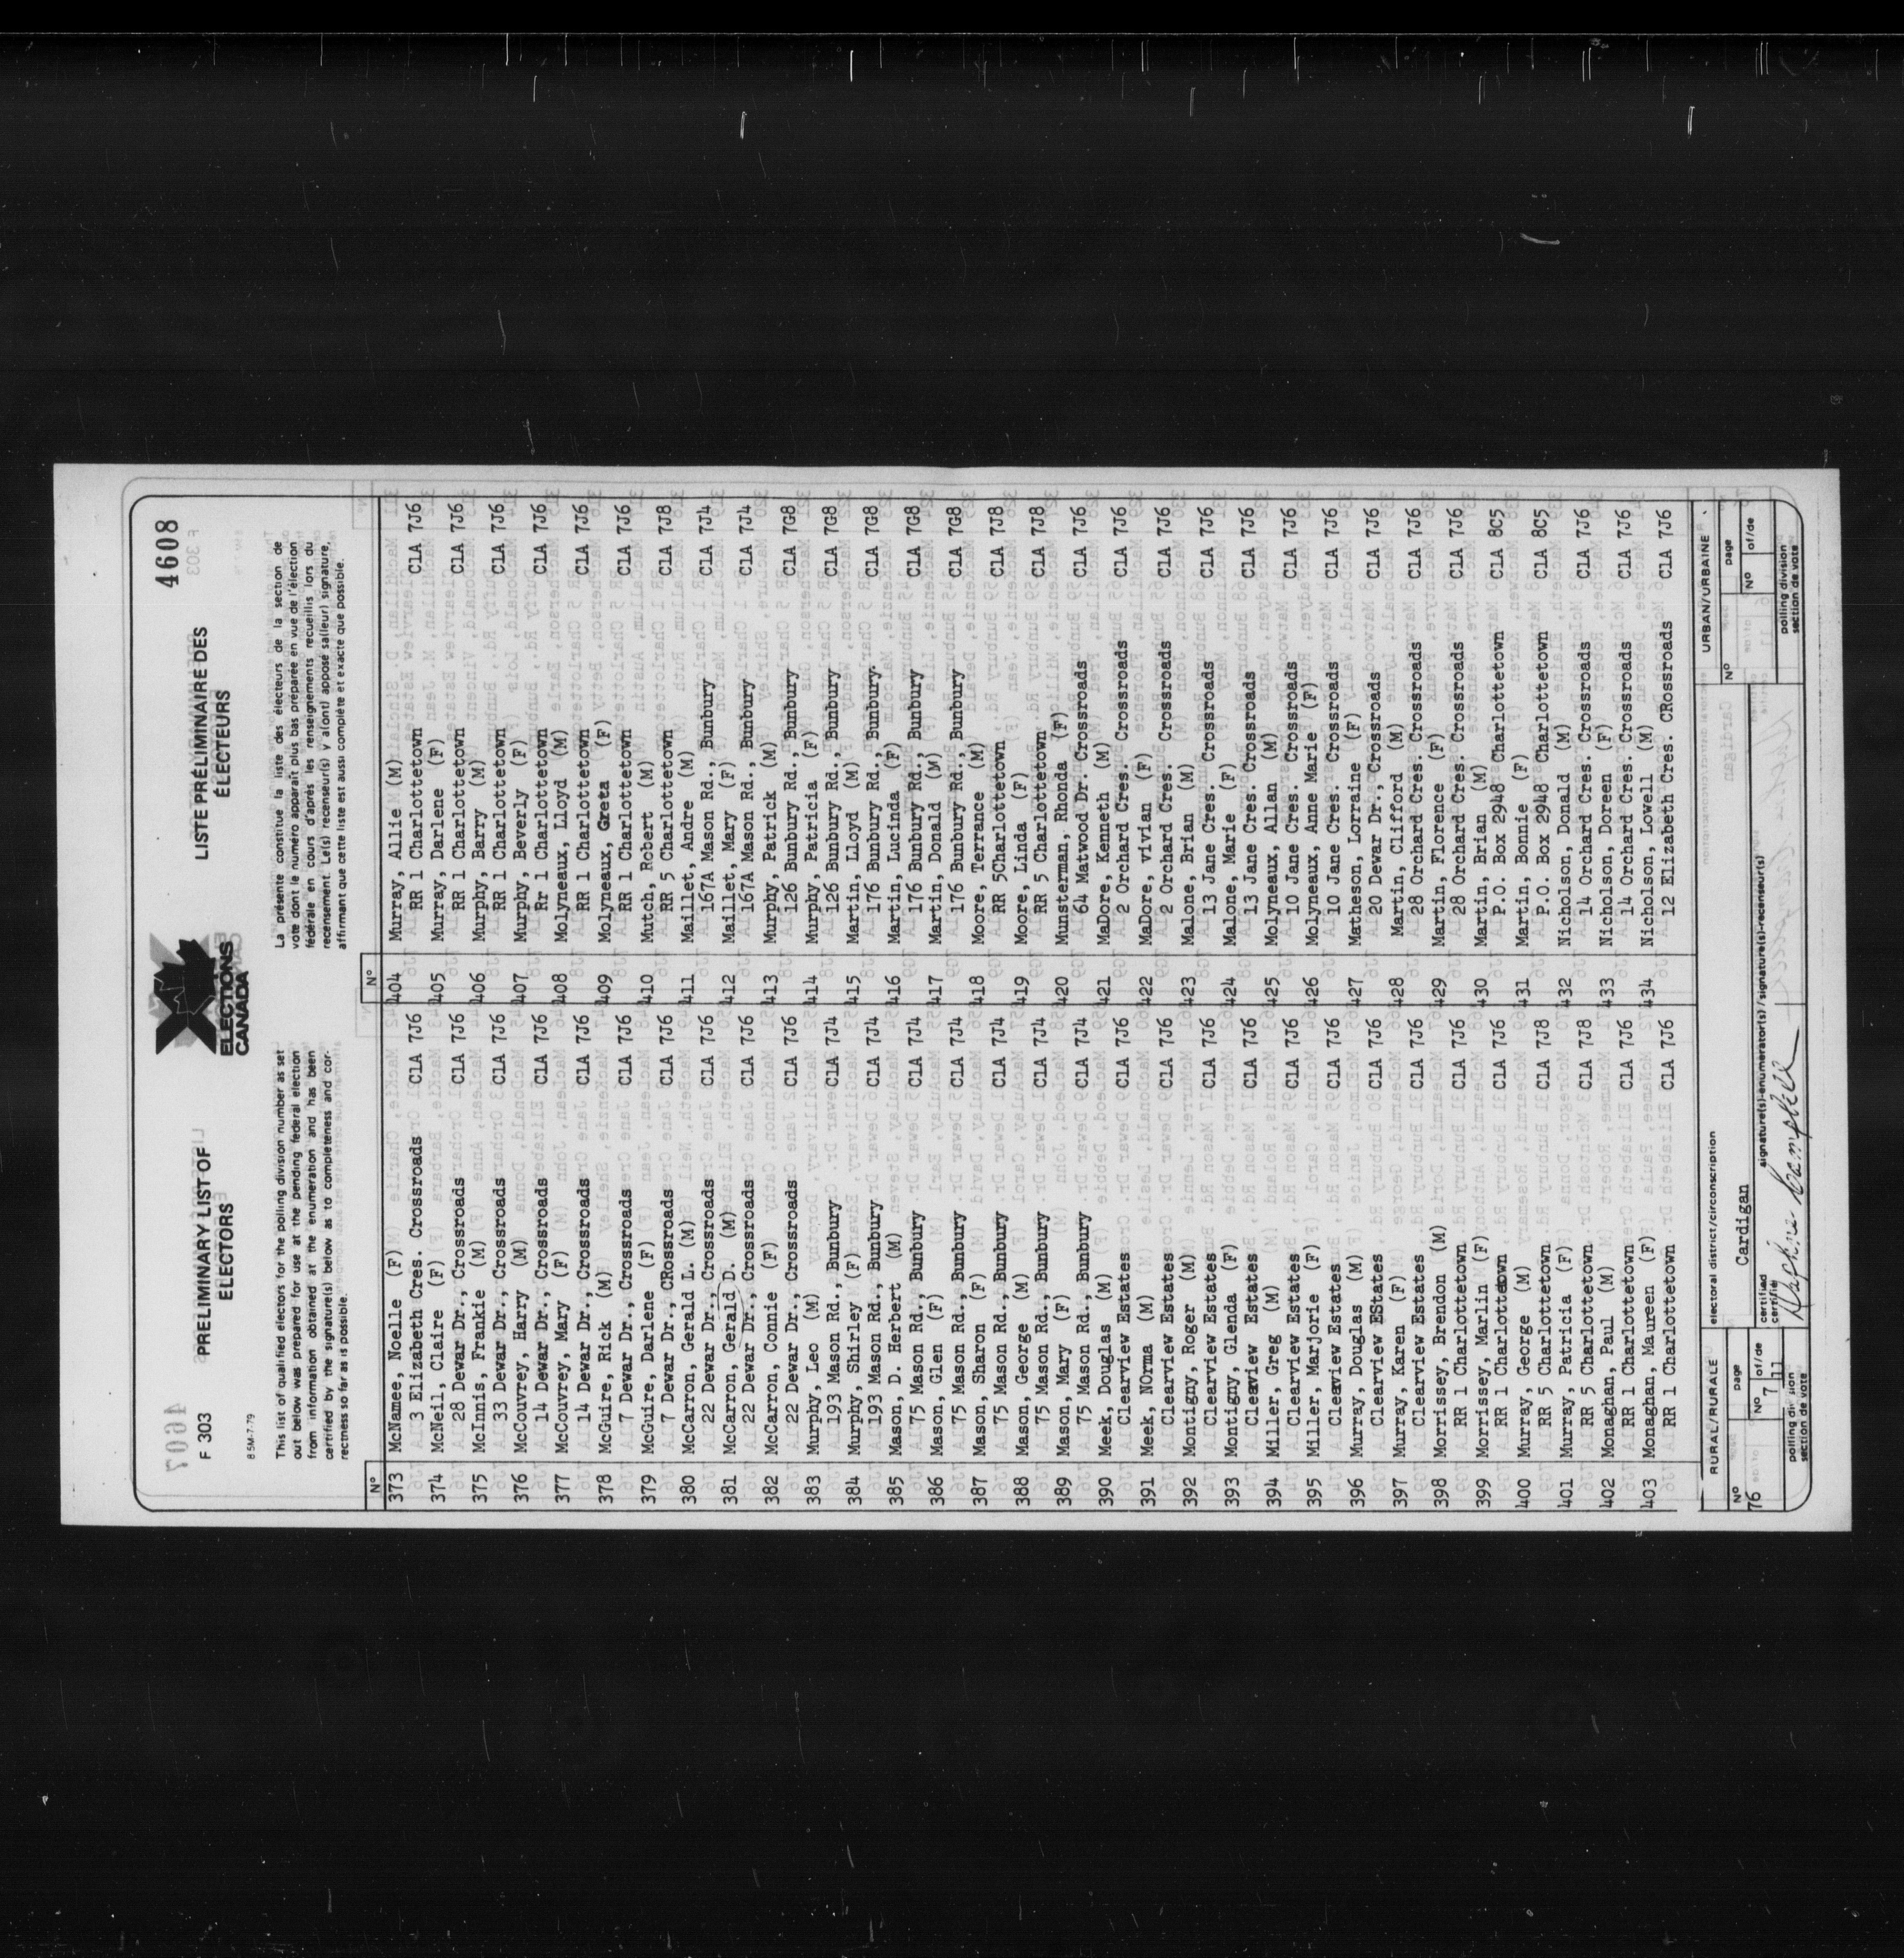 4608
F 303
PRELIMINARY LIST OF
ELECTORS
ELECTIONS
CANADA
LISTE PRÉLIMINAIRE DES
ÉLECTEURS
85M-7-79
This list of qualified electors for the polling division number as set
out below was prepared for use at the pending federal election
from information obtained at the enumeration and has been
certified by the signature(s) below as to completeness and cor-
rectness so far as is possible.
La présente constitue la liste des électeurs de la section de
vote dont le numéro apparaît plus bas préparée en vue de l'élection
fédérale en cours d'après les renseignements recueillis lors du
recensement. Le(s) recenseur(s) y a(ont) apposé sa(leur) signature,
affirmant que cette liste est aussi complète et exacte que possible.
Nº
373 McNamee, Noelle (F)
3 Elizabeth Cres. Crossroads C1A 7J6
374 McNeil, Claire (F)
28 Dewar Dr., Crossroads C1A 7J6
375 McInnis, Frankie (M)
33 Dewar Dr., Crossroads C1A 7J6
376 McCouvrey, Harry (M)
14 Dewar Dr., Crossroads C1A 7J6
377 McCouvrey, Mary (F)
14 Dewar Dr., Crossroads C1A 7J6
378 McGuire, Rick (M)
7 Dewar Dr., Crossroads C1A 7J6
379 McGuire, Darlene (F)
7 Dewar Dr., CRossroads C1A 7J6
380 McCarron, Gerald L. (M)
22 Dewar Dr., Crossroads C1A 7J6
381 McCarron, Gerald D. (M)
22 Dewar Dr., Crossroads C1A 7J6
382 McCarron, Connie (F)
22 Dewar Dr., Crossroads C1A 7J6
383 Murphy, Leo (M)
193 Mason Rd., Bunbury C1A 7J4
384 Murphy, Shirley (F)
193 Mason Rd., Bunbury C1A 7J4
385 Mason, D. Herbert (M)
75 Mason Rd., Bunbury C1A 7J4
386 Mason, Glen (F)
75 Mason Rd., Bunbury C1A 7J4
387 Mason, Sharon (F)
75 Mason Rd., Bunbury C1A 7J4
388 Mason, George (M)
75 Mason Rd., Bunbury C1A 7J4
389 Mason, Mary (F)
75 Mason Rd., Bunbury C1A 7J4
390 Meek, Douglas (M)
Clearview Estates C1A 7J6
391 Meek, NOrma (M)
Clearview Estates C1A 7J6
392 Montigny, Roger (M)
Clearview Estates C1A 7J6
393 Montigny, Glenda (F)
Clearview Estates C1A 7J6
394 Miller, Greg (M)
Clearview Estates C1A 7J6
395 Miller, Marjorie (F)
Clearview Estates C1A 7J6
396 Murray, Douglas (M)
Clearview EStates C1A 7J6
397 Murray, Karen (F)
Clearview Estates C1A 7J6
398 Morrissey, Brendon (M)
RR 1 Charlottetown C1A 7J6
399 Morrissey, Marlin (F)
RR 1 Charlottetown C1A 7J6
400 Murray, George (M)
RR 5 Charlottetown C1A 7J8
401 Murray, Patricia (F)
RR 5 Charlottetown C1A 7J8
402 Monaghan, Paul (M)
RR 1 Charlottetown C1A 7J6
403 Monaghan, Maureen (F)
RR 1 Charlottetown C1A 7J6
Nº
404 Murray, Allie (M)
RR 1 Charlottetown C1A 7J6
405 Murray, Darlene (F)
RR 1 Charlottetown C1A 7J6
406 Murphy, Barry (M)
RR 1 Charlottetown C1A 7J6
407 Murphy, Beverly (F)
Rr 1 Charlottetown C1A 7J6
408 Molyneaux, Lloyd (M)
RR 1 Charlottetown C1A 7J6
409 Molyneaux, Greta (F)
RR 1 Charlottetown C1A 7J6
410 Mutch, Robert (M)
RR 5 Charlottetown C1A 7J8
411 Maillet, Andre (M)
167A Mason Rd., Bunbury C1A 7J4
412 Maillet, Mary (F)
167A Mason Rd., Bunbury C1A 7J4
413 Murphy, Patrick (M)
126 Bunbury Rd., Bunbury C1A 7G8
414 Murphy, Patricia (F)
126 Bunbury Rd., Bunbury C1A 7G8
415 Martin, Lloyd (M)
176 Bunbury Rd., Bunbury. C1A 7G8
416 Martin, Lucinda (F)
176 Bunbury Rd., Bunbury C1A 7G8
417 Martin, Donald (M)
176 Bunbury Rd., Bunbury C1A 7G8
418 Moore, Terrance (M)
RR 5Charlottetown C1A 7J8
419 Moore, Linda (F)
RR 5 Charlottetown C1A 7J8
420 Musterman, Rhonda (F)
64 Matwood Dr. Crossroads C1A 7J6
421 MaDore, Kenneth (M)
2 Orchard Cres. Crossroads C1A 7J6
422 MaDore, vivian (F)
2 Orchard Cres. Crossroads C1A 7J6
423 Malone, Brian (M)
13 Jane Cres. Crossroads C1A 7J6
424 Malone, Marie (F)
13 Jane Cres. Crossroads C1A 7J6
425 Molyneaux, Allan (M)
10 Jane Cres. Crossroads C1A 7J6
426 Molyneaux, Anne Marie (F)
10 Jane Cres. Crossroads C1A 7J6
427 Matheson, Lorraine (F)
20 Dewar Dr., Crossroads C1A 7J6
428 Martin, Clifford (M)
28 Orchard Cres. Crossroads C1A 7J6
429 Martin, Florence (F)
28 Orchard Cres. Crossroads C1A 7J6
430 Martin, Brian (M)
P.O. Box 2948 Charlottetown C1A 8C5
431 Martin, Bonnie (F)
P.O. Box 2948 Charlottetown C1A 8C5
432 Nicholson, Donald (M)
14 Orchard Cres. Crossroads C1A 7J6
433 Nicholson, Doreen (F)
14 Orchard Cres. Crossroads C1A 7J6
434 Nicholson, Lowell (M)
12 Elizabeth Cres. CRossroads C1A 7J6
RURAL/RURALE
Nº
76
page
Nº 7 of/de 11
polling division
section de vote
electoral district/circonscription
Cardigan
certified
certifié
signature(s)-enumerator(s)/signature(s)-recenseur(s)
URBAN/URBAINE
Nº
page
Nº of/de
polling division
section de vote